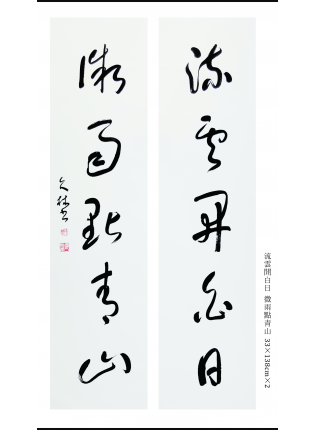 流雲開白日
微雨點青山
流雲開白日 微雨點青山 33×138cm×2